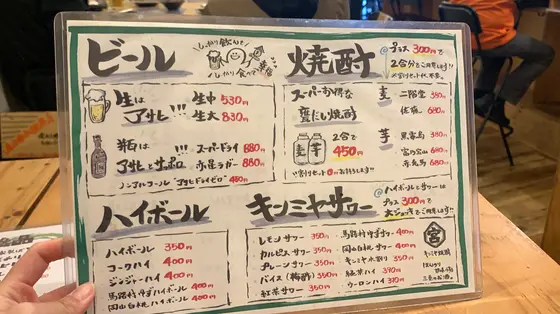 ビール
しっかり飲んで
しっかり食べて
生は
アサヒ!!!
生中 530円
生大 830円
瓶は
アサヒとサッポロ!!!
スーパードライ 680円
赤星ラガー 680円
ノンアルコール アサヒドライゼロ 480円
焼酎
プラス 300円で
2合分でご用意します!!
スーパーお得な
甕だし焼酎
麦
芋
2合で
450円
麦
二階堂 380円
佐藤
芋
黒霧島 380円
富乃宝山
赤兎馬 680円
ハイボール
ハイボール 350円
コークハイ 400円
ジンジャーハイ 400円
馬路村ゆずハイボール 400円
岡山白桃ハイボール 400円
キンミヤサワー
@ハイボールとサワーは
プラス 300円で
レモンサワー 350円
カルピスサワー 350円
プレーンサワー 350円
バイス(梅酢) 350円
紅茶サワー 350円
馬路村ゆずサワー 400円
岡山白桃サワー 400円
キンミヤ水割り 350円
緑茶ハイ 370円
ウーロンハイ 370円
宮
キンミヤ焼酎